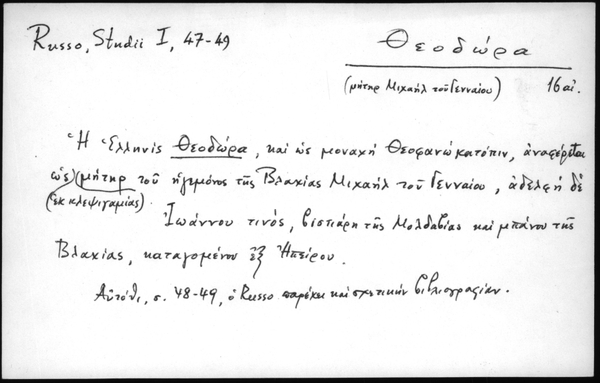 Russo, Studii I, 47-49
Θεοδώρα
(μήτηρ Μιχαήλ τοῦ Γενναίου) 16 αἰ.
Ἡ Ἑλληνὶς Θεοδώρα, καὶ ὡς μοναχὴ Θεοφανὼ κατόπιν, ἀναφέρεται
ὡς μήτηρ τοῦ ἡγεμόνος τῆς Βλαχίας Μιχαήλ τοῦ Γενναίου, ἀδελφὴ δὲ
(ἐκ κλεψιγαμίας)
Ἰωάννου τινός, βιστιάρη τῆς Μολδαβίας καὶ μπάνου τῆς
Βλαχίας, καταγομένου ἐξ Ἠπείρου.
Αὐτόθι, σ. 48-49, ὁ Russo παρέχει καὶ σχετικὴν βιβλιογραφίαν.